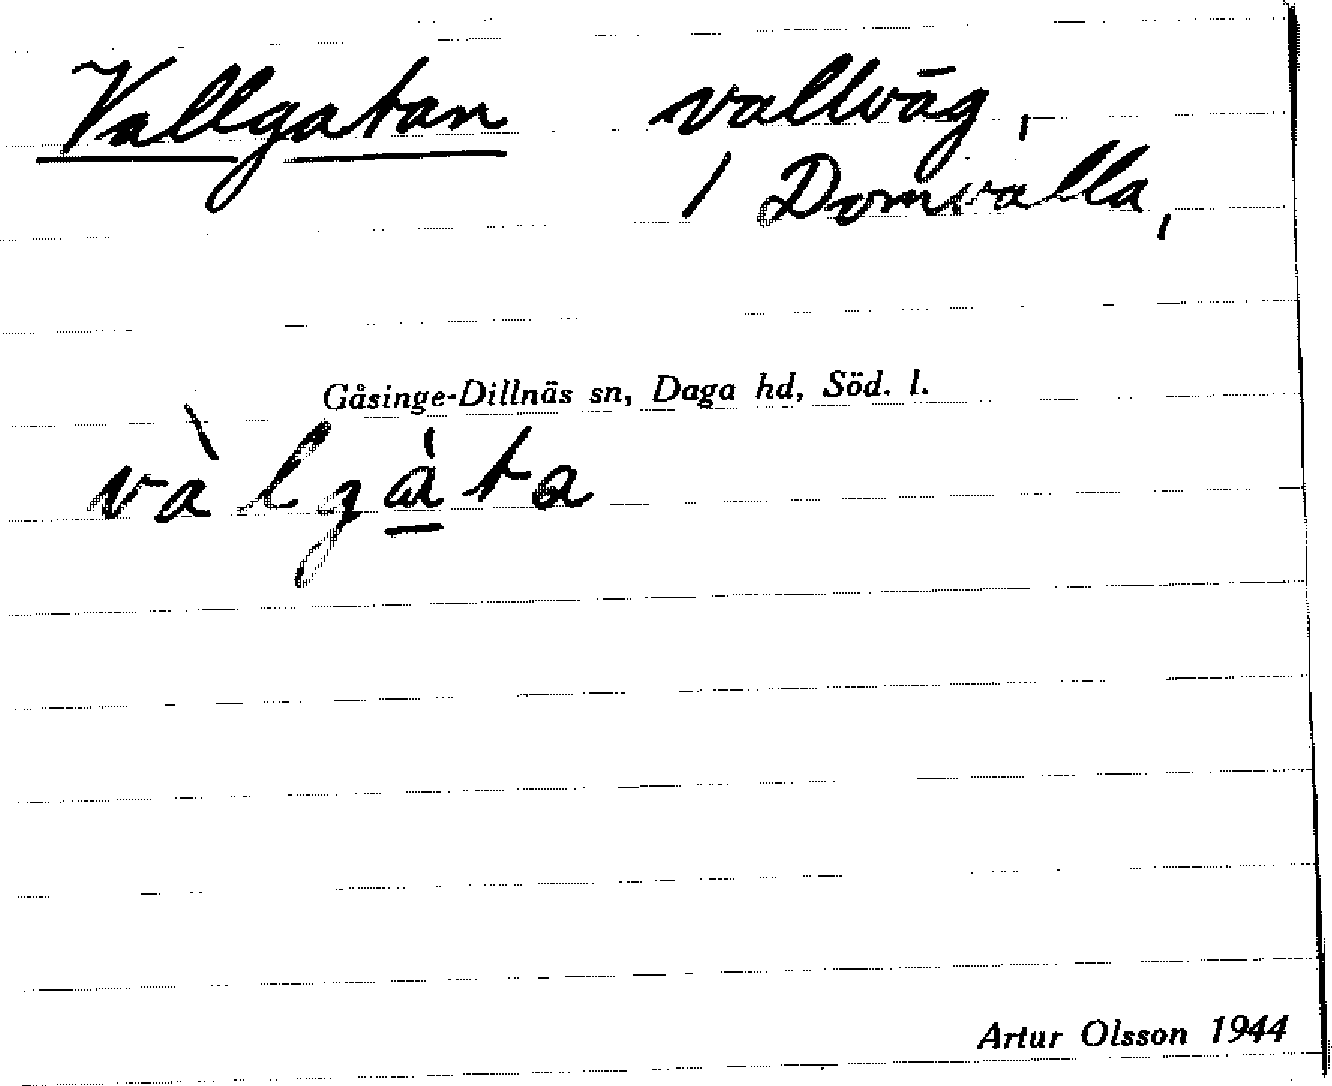 Vallgatan vallväg,
/ Domvalla,
Gåsinge-Dillnäs sn, Daga hd, Söd. l.
vàlgàta
Artur Olsson 1944